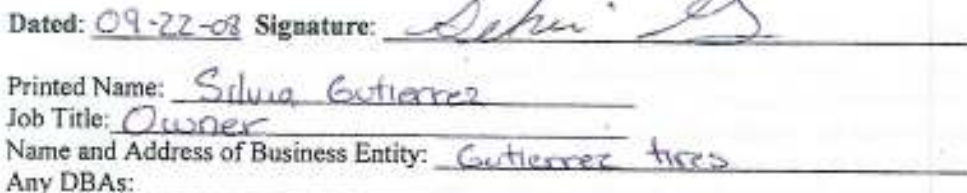 Dated: 09-22-08 Signature:
Printed Name: Silvia Gutierrez
Job Title: Owner
Name and Address of Business Entity: Gutierrez tires
Any DBAs: